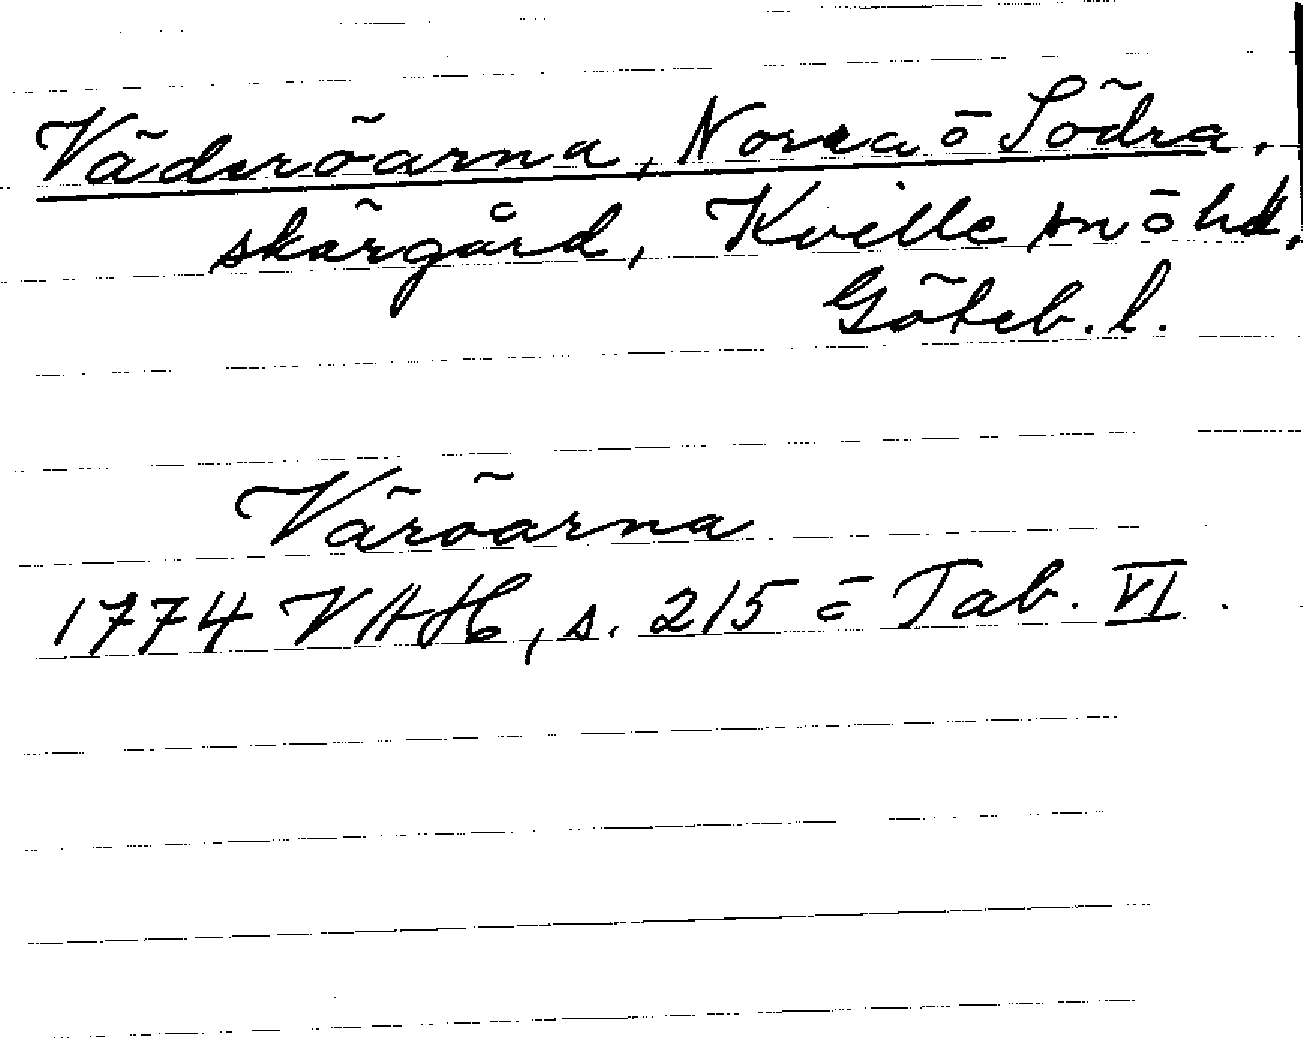 Väderöarna, Norra o Södra.
skärgård, Kville sn o hd.
Göteb. l.
Väröarna
1774 VAH, s. 215 o Tab. VI.